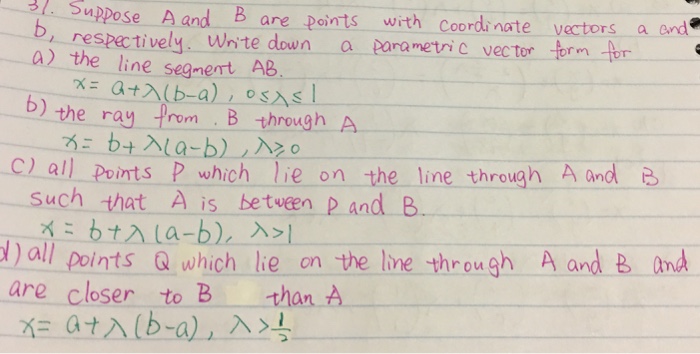 31. Suppose A and B are points with coordinate vectors a and
b, respectively. Write down a parametric vector form for
a) the line segment AB.
x= a+λ(b-a), 0≤λ≤1
b) the ray from B through A
x= b+λ(a-b), λ≥0
c) all points P which lie on the line through A and B
such that A is between P and B.
x= b+λ(a-b), λ>1
d) all points Q which lie on the line through A and B and
are closer to B than A
x= a+λ(b-a), λ>1/2